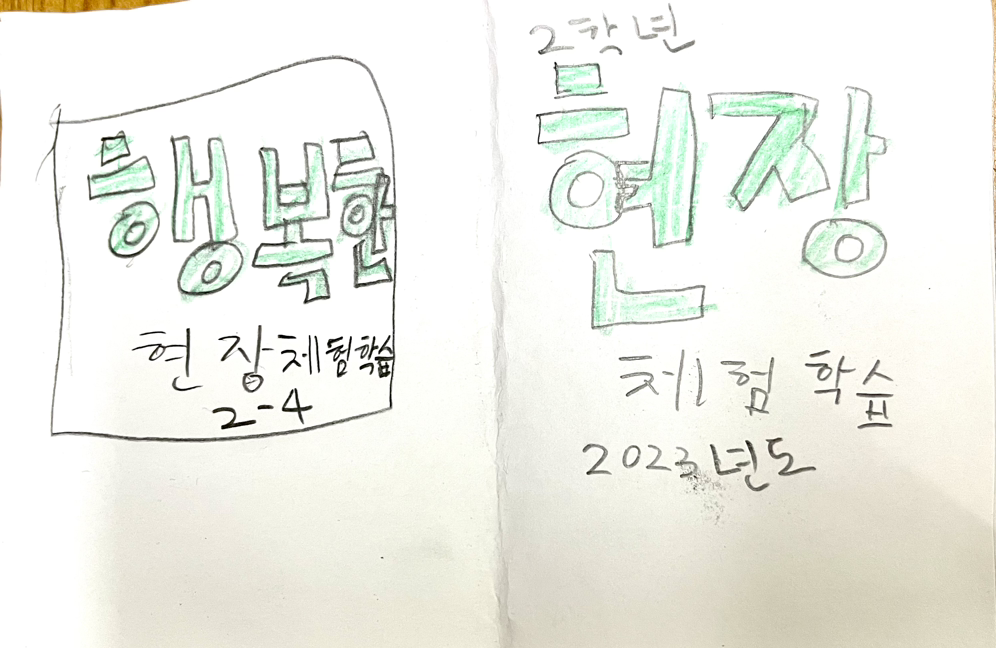 행복한
현장체험학습
2-4
2학년
현장
체험학습
2023년도